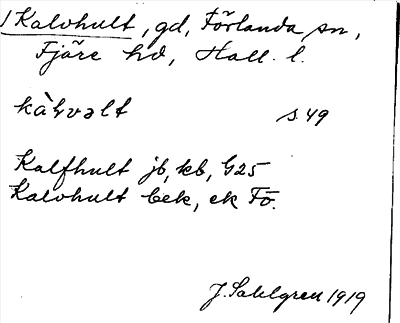 1 Kalvhult, gd, Förlanda sn,
Fjäre hd, Hall. l.
s. 49
Kalfhult jb, kb, G25
Kalvhult bek, ek Fö.
J. Sahlgren 1919